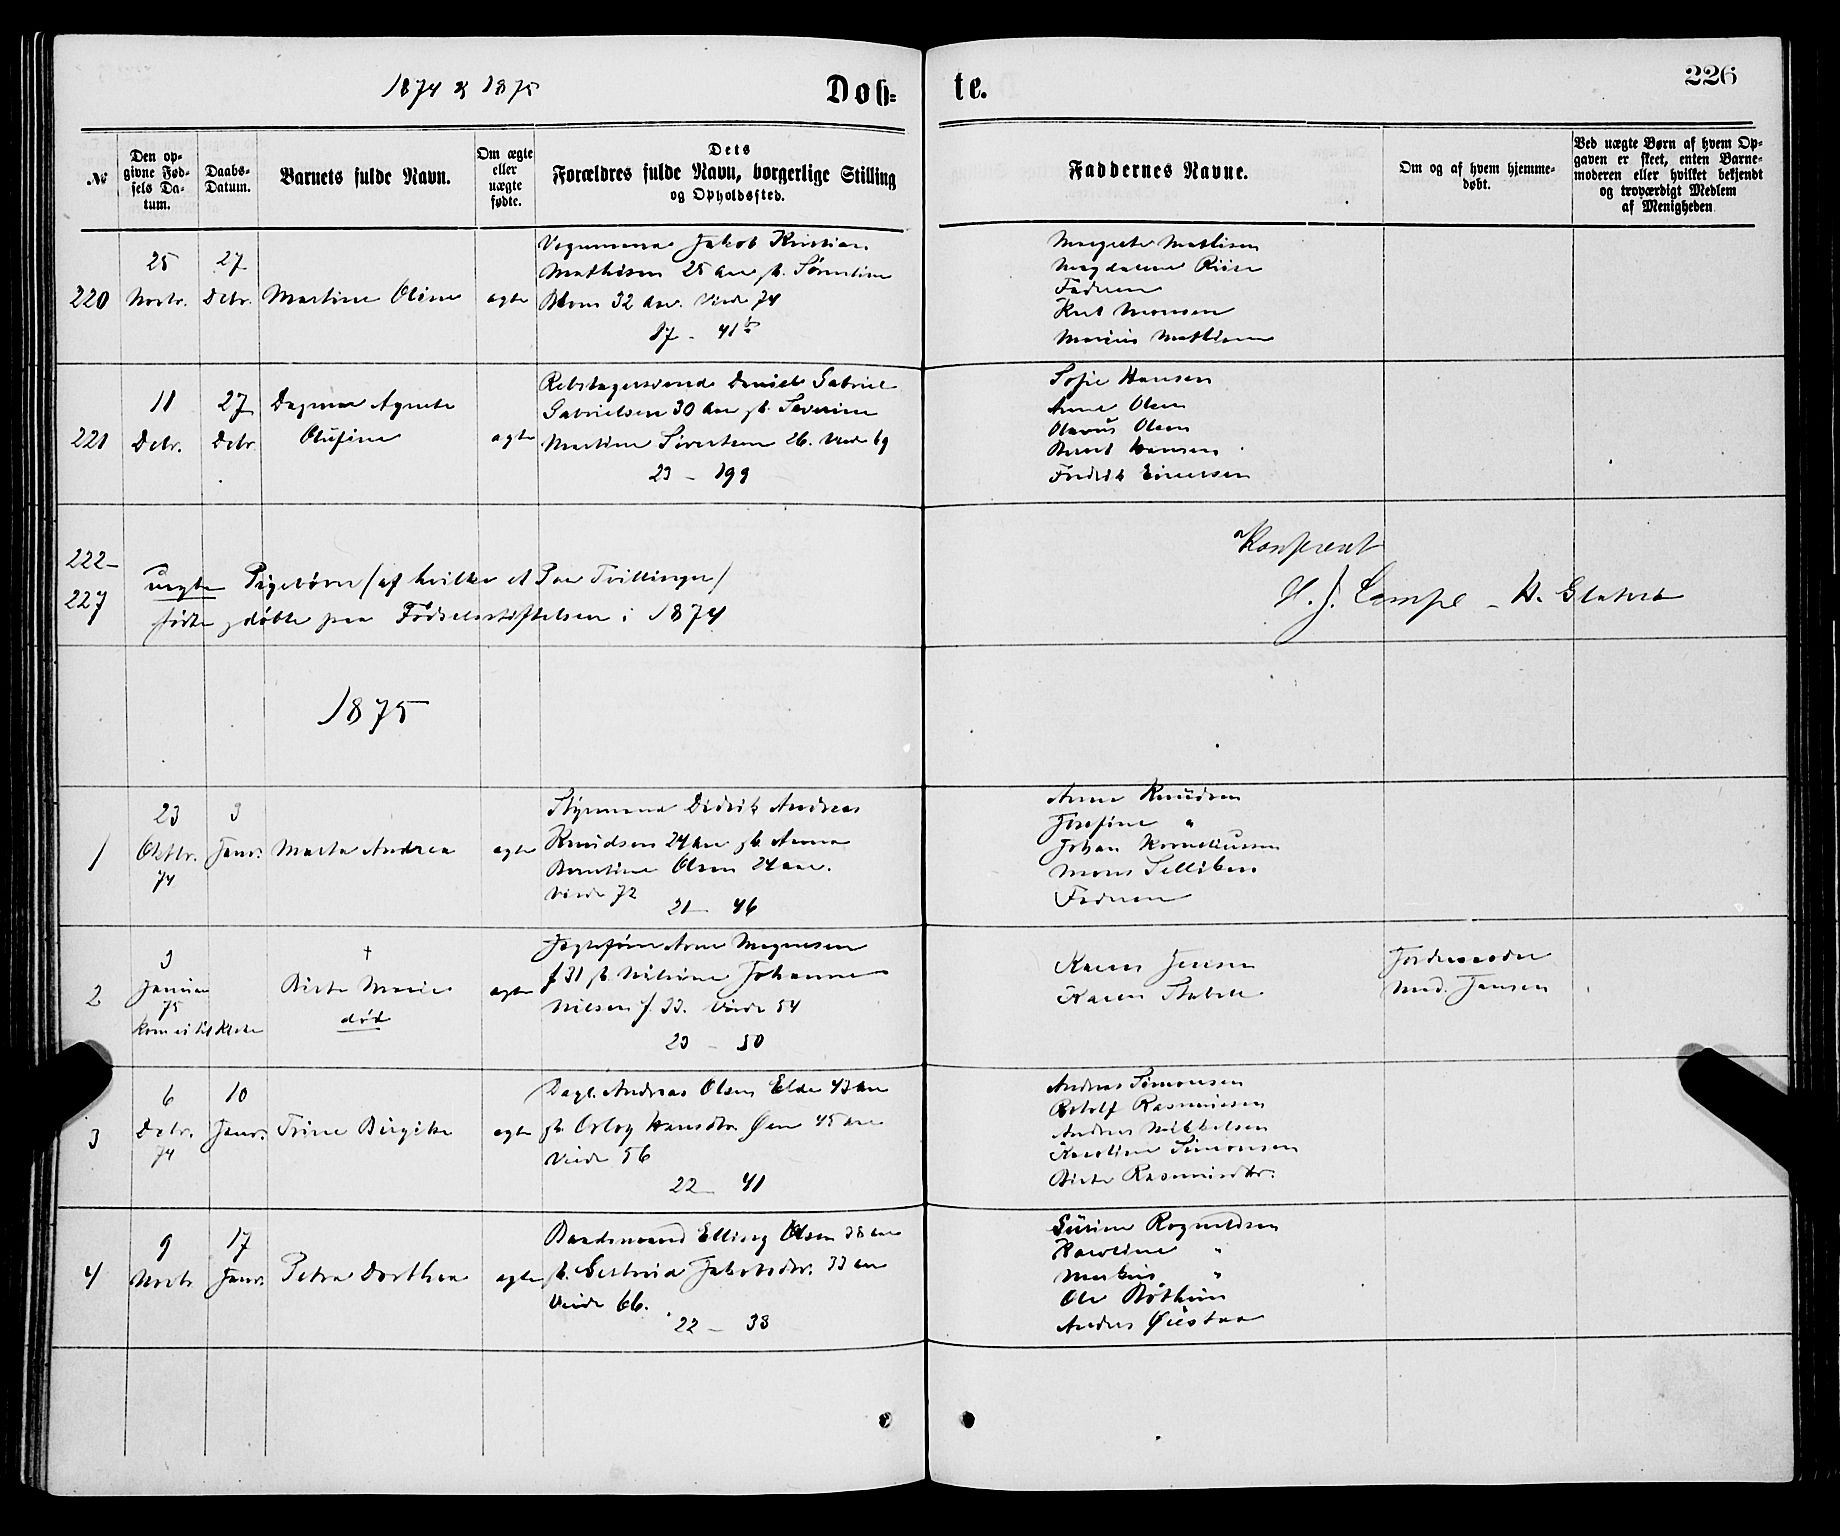 1874 & 1875
Døb=
te.
226
№
Den op-
givne Fød-
sels Da-
tum.
Daabs-
Datum.
Barnets fulde Navn.
Om ægte
eller
uægte
fødte.
Dets
Forældres fulde Navn, borgerlige Stilling
og Opholdssted.
Faddernes Navne.
Om og af hvem hjemme-
døbt.
Ved uægte Børn af hvem Op-
gaven er skeet, enten Barne-
moderen eller hvilket bekjendt
og troværdigt Medlem
af Menigheden
220
25
Novbr.
27
Debr.
Martine Oline
ægte
Vognmand Jakob Kristian
Mathisen 25 Aar & Sørentine
32 Aar. Viede 74
17 - 41 b
Margrete Mathisen
Magdalene Riise
Faderen
Knut Monsen
Marius Mathisen
221
11
Debr.
27
Debr.
Dagmar Agnete
Olufine
ægte
Rebslagersvend Daniel Gabriel
Gabrielsen 30 Aar & Severine
Martine Sivertsen 26. Viede 69
23 - 199
Sofie Hansen
Anne Olsen
Olavus Olsen
Bernt Hansen
Fredrik Einersen
222-
227
uægte Pigebørn (af hvilke et Par Tvillinger)
fødte & døbte paa Fødselsstiftelsen i 1874
Konfereret
H. J. Lampe - H. Glatved
1875
1
23
Oktbr.
74
3
Janr.
Marta Andrea
ægte
Styrmand Didrik Andreas
Knudsen 24 Aar & Anna
Berntine Olsen 24 Aar.
Viede 72
21 - 46
Anne Knudsen
Josefine "
Johan Korneliussen
Mons Telliksen
Faderen
2
3
Januar
75
kom ei til Kirke
†
Birte Marie
død
ægte
Jægtefører Arne Magnesen
f 31 & Johanna
Nilsen f. 33. Viede 54
23 - 50
Karen Jensen
Karen Stabel
Jordemoder
Mad. Jansen
3
6
Debr.
74
10
Janr.
Trine Birgitte
ægte
Dagl. Andreas Olsen Elde 43 Aar
& Hansdtr. Øen 45 Aar
Viede 56
22 - 41
Andreas Simonsen
Rasmussen
Andreas Mikkelsen
Karoline Simonsen
Birte Rasmusdtr.
4
9
Novbr
17
Janr.
Petra Dorthea
ægte
Baadsmand Elling Olsen 38 Aar
& Jakobsdtr. 33 Aar
Viede 66.
22 - 38
Sürine Rognaldsen
Karoline "
Markus "
Ole Bøthun
Anders